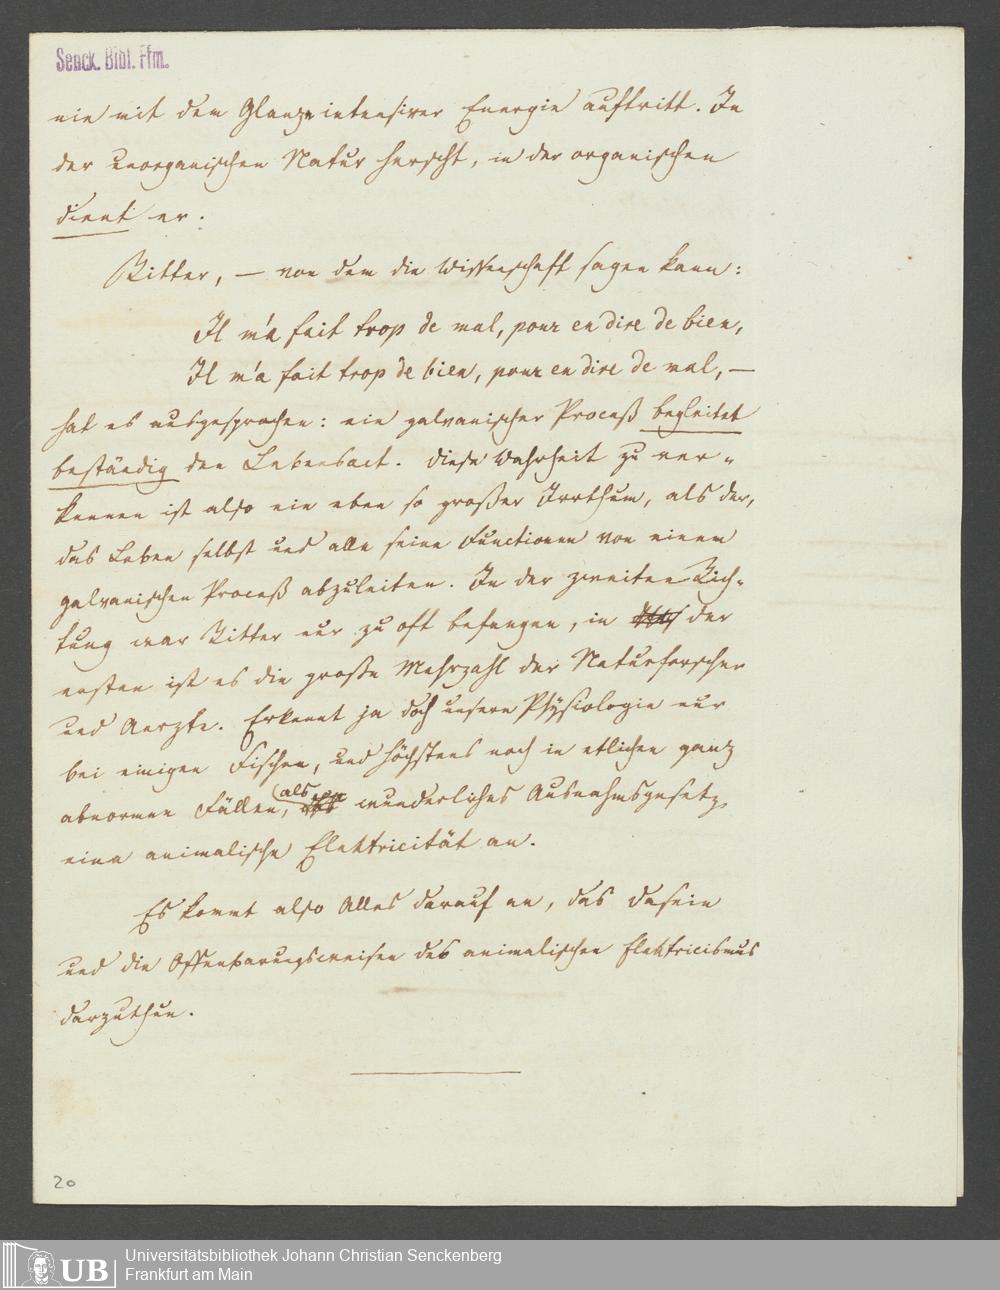 Senck. Bibl. Ffm.
nie mit dem Glanze intensiver Energie auftritt. In
der unorganischen Natur herscht, in der organischen
dient er.
Ritter, — von dem die Wissenschaft sagen kann:
Il m'a fait trop de mal, pour en dire de bien,
Il m'a fait trop de bien, pour en dire de mal, —
hat es ausgesprochen: ein galvanischer Proceß begleitet
beständig den Lebensact. Diese Wahrheit zu ver-
kennen ist also ein eben so großer Irrthum, als der,
das Leben selbst und alle seine Functionen von einem
galvanischen Proceß abzuleiten. In der zweiten Rich-
tung war Ritter nur zu oft befangen, in der
ersten ist es die große Mehrzahl der Naturforscher
und Aerzte. Erkennt ja doch unsere Physiologie nur
bei einigen Fischen, und höchstens noch in etlichen ganz
abnormen Fällen, als wunderliches Ausnahmsgesetz,
eine animalische Elektricität an.
Es kommt also Alles darauf an, das Dasein
und die Offenbarungsweisen des animalischen Elektricismus
darzuthun.
20
UB
Universitätsbibliothek Johann Christian Senckenberg
Frankfurt am Main